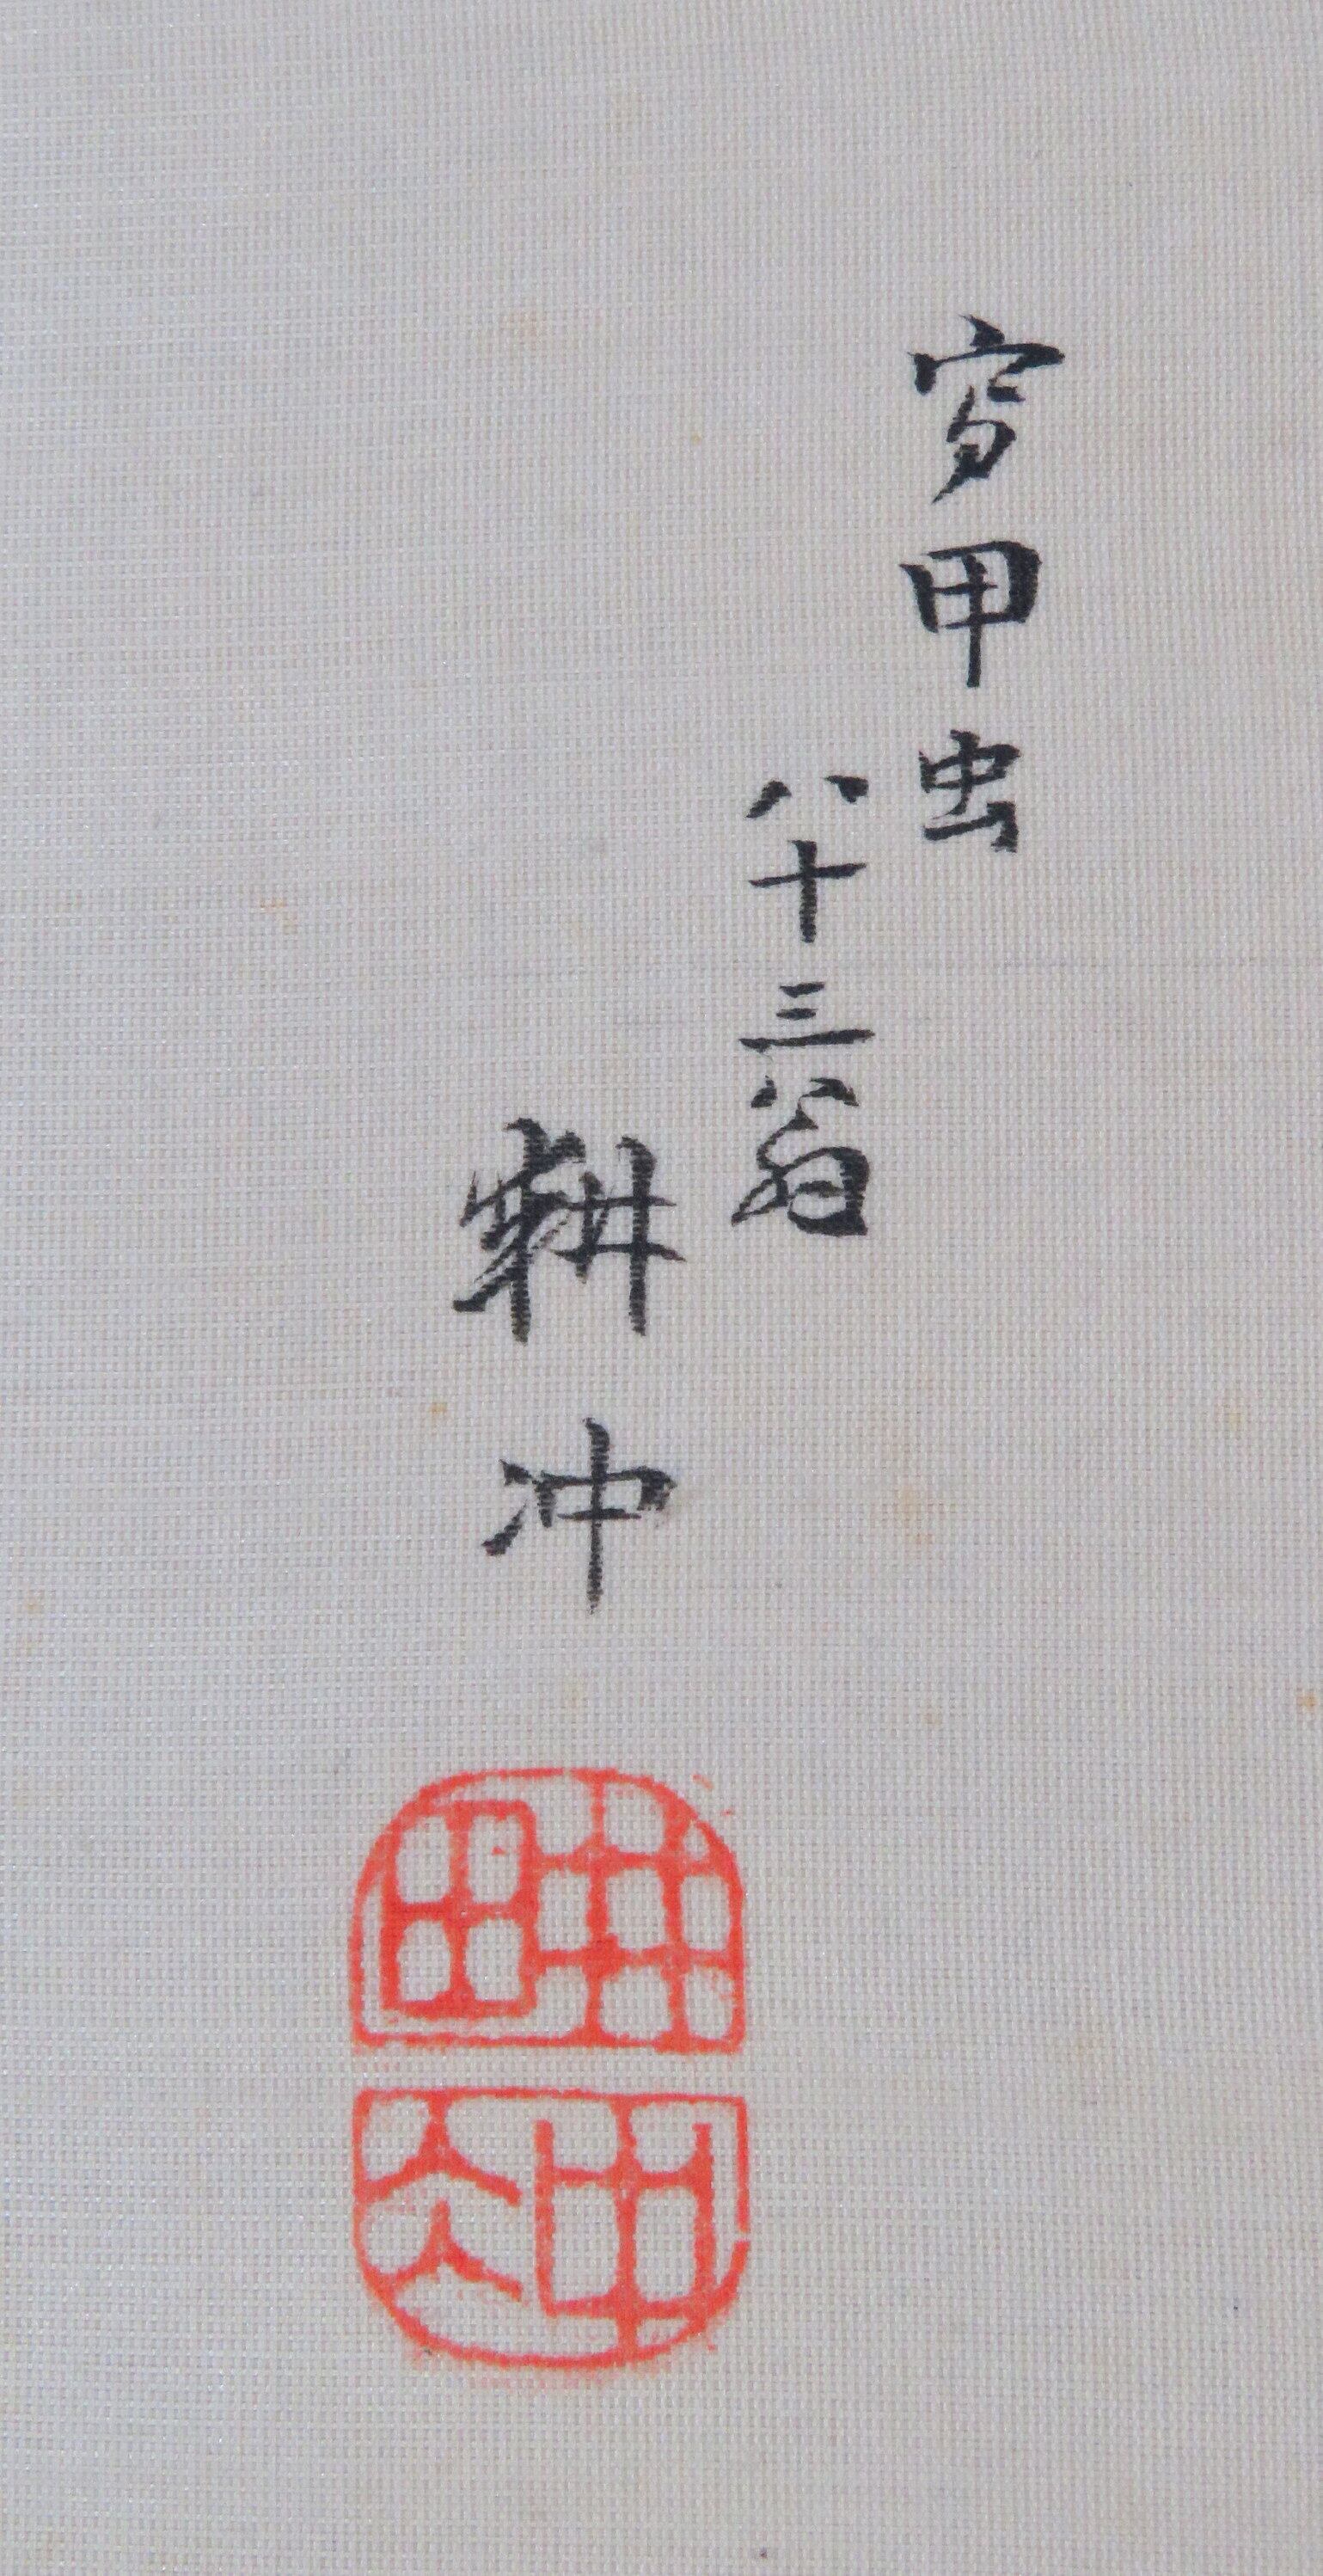 写甲虫
八十三翁
耕冲
畊冲